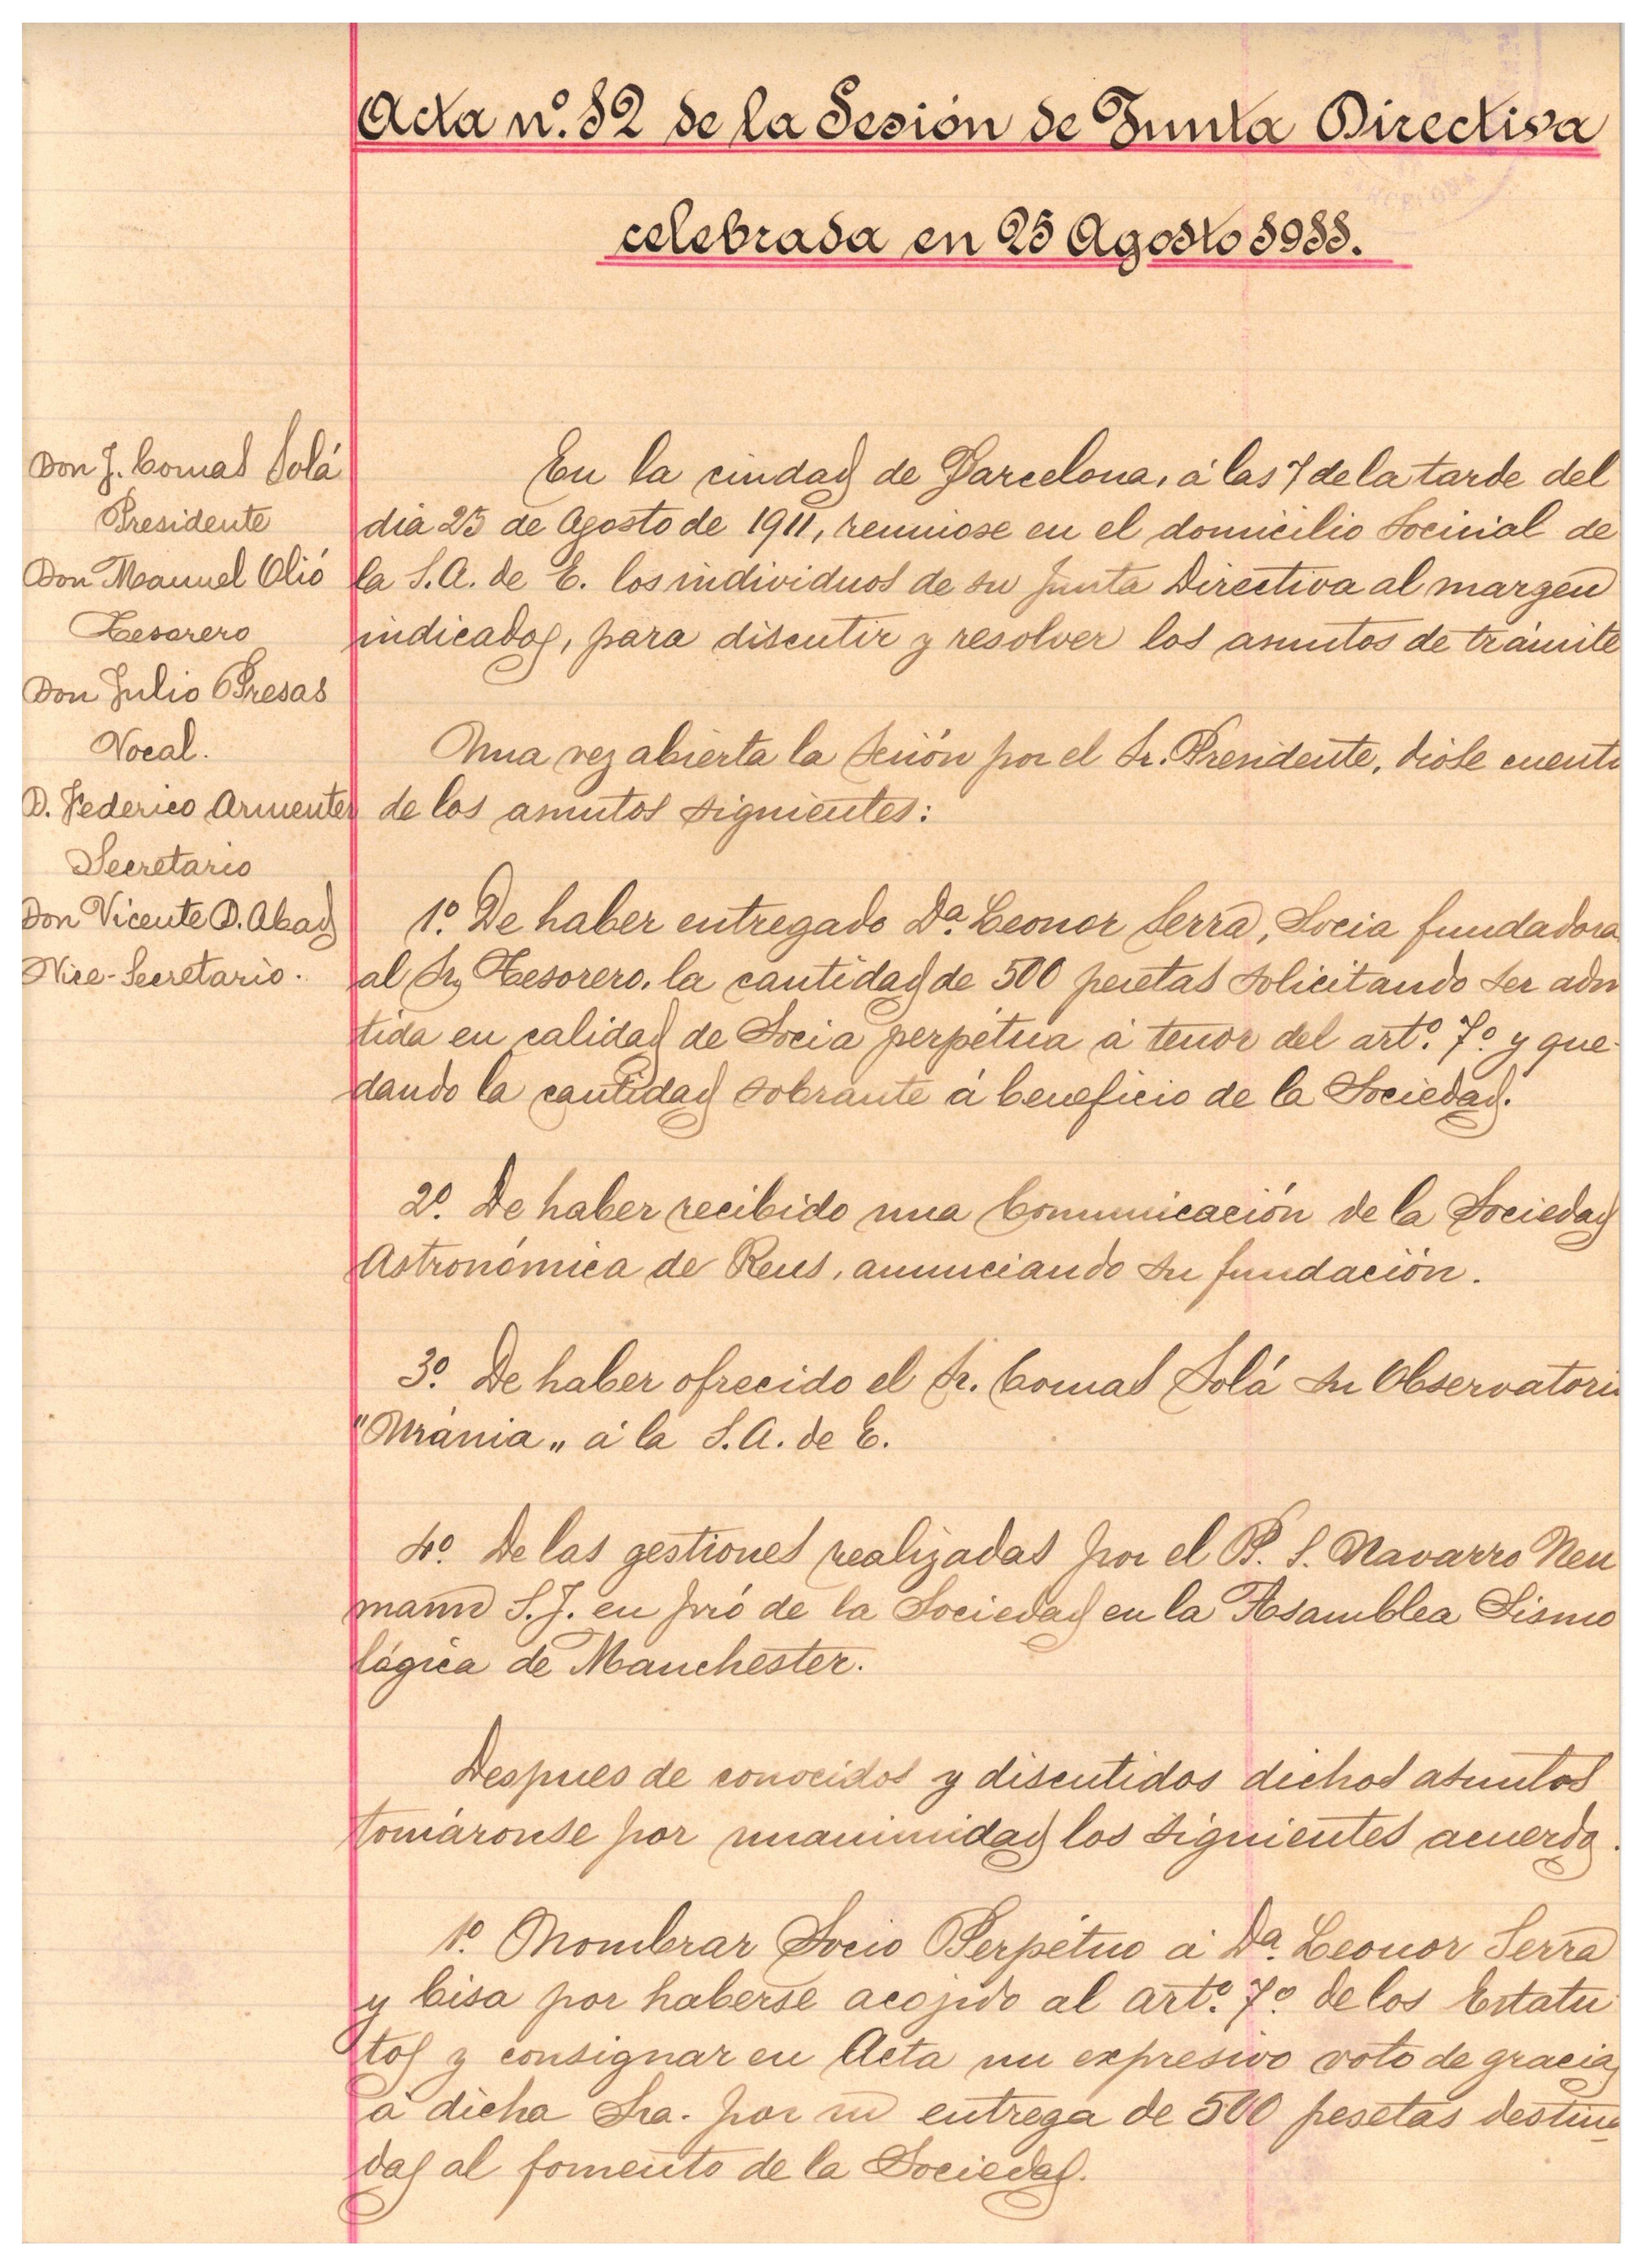 Acta n.º 12 de la Sesión de Junta Directiva
celebrada en 25 Agosto 1911.
Don J. Comas Solá
Presidente
Don Manuel Olió
Tesorero
Don Julio Presas
Vocal.
D. Federico Armenter
Secretario
Don Vicente D. Abad
Vice-Secretario.
En la ciudad de Barcelona, á las 7 de la tarde del
dia 25 de Agosto de 1911, reuniose en el domicilio Socinial de
la S.A. de E. los individuos de su Junta Directiva al margen
indicados, para discutir y resolver los asuntos de trámite
Una vez abierta la sesión por el Sr. Presidente, dióse cuenta
de los asuntos siguientes:
1º. De haber entregado Dª. Leonor Serra, Socia fundadora
al Sr. Tesorero, la cantidad de 500 pesetas solicitando ser adm
tida en calidad de Socia perpétua á tenor del artº. 7º. y que-
dando la cantidad sobrante á beneficio de la Sociedad.
2º. De haber recibido una Comunicación de la Sociedad
Astronómica de Reus, anunciando su fundación.
3º. De haber ofrecido el Sr. Comas Solá su Observatorio
"Urania„ á la S.A. de E.
4º. De las gestiones realizadas por el P. S. Navarro Neu
mann S.J. en pró de la Sociedad en la Asamblea Sismo
lógica de Manchester.
Despues de conocidos y discutidos dichos asuntos
tomáronse por unanimidad los siguientes acuerdos.
1º. Nombrar Socio Perpétuo á Dª. Leonor Serra
y Cisa por haberse acojido al artº. 7º. de los Estatu
tos y consignar en Acta un expresivo voto de gracias
á dicha Sra. por su entrega de 500 pesetas destina
das al fomento de la Sociedad.